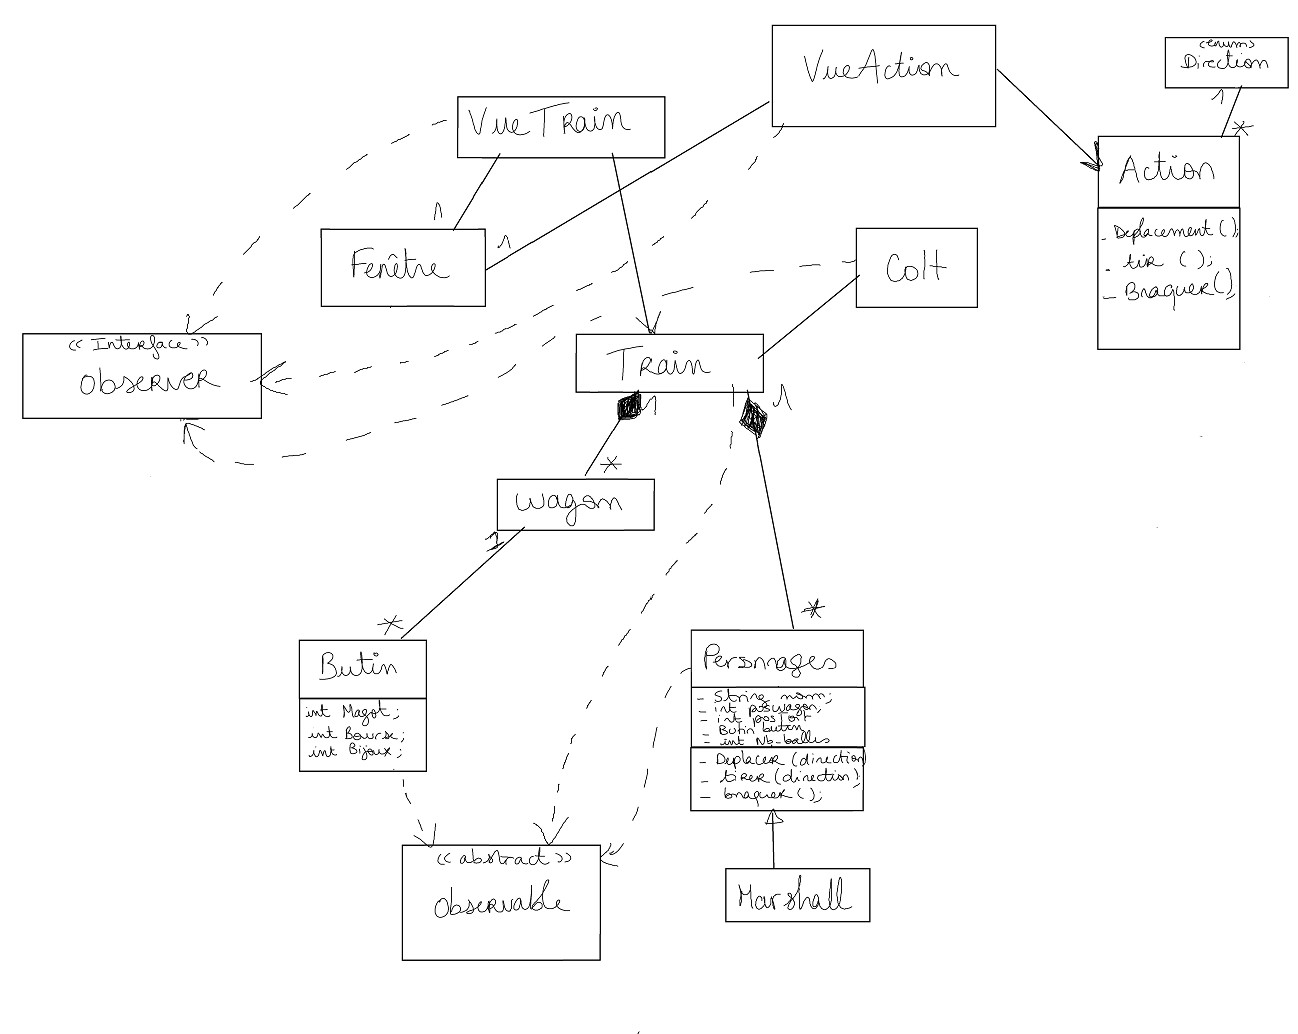 VueAction
(enum)
Direction
1
*
VueTrain
Action
- Deplacement ();
- tir ();
- Braquer();
1
Fenêtre
1
Colt
<< Interface >>
Observer
Train
1
1
*
wagon
1
*
*
Butin
int Magot;
int Bourse;
int Bijoux;
Personnages
- String nom;
- int poswagon;
- int posToit
- Butin butin
- int Nb-balles
- Deplacer (direction)
- tirer (direction)
- braquer ();
<< abstract >>
Observable
Marshall